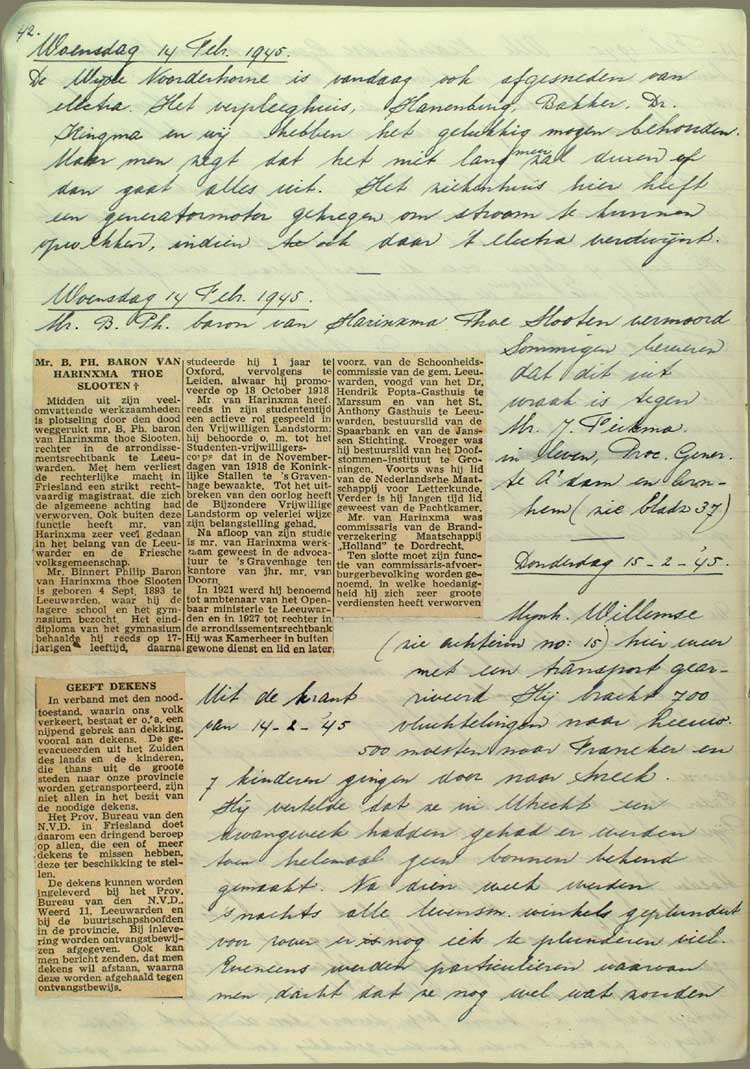 42.
Woensdag 14 Febr. 1945.
De Wijde Noorderhorne is vandaag ook afgesneden van
electra. Het verpleeghuis, Hanenburg, Bakker, Dr.
Kingma en wij hebben het gelukkig mogen behouden.
Maar men zegt dat het niet lang meer zal duren of
dan gaat alles uit. Het ziekenhuis hier heeft
een generatormotor gekregen om stroom te kunnen
opwekken, indien ook daar 't electra verdwijnt.
Woensdag 14 Febr. 1945.
Mr. B. Ph. baron van Harinxma Thoe Slooten vermoord
Sommigen beweren
dat dit uit
wraak is tegen
Mr. J. Feitsma
in leven, Proc. Gener.
te A'dam en Arn-
hem (zie bladz 37)
Mr. B. PH. BARON VAN
HARINXMA THOE
SLOOTEN †
Midden uit zijn veel-
omvattende werkzaamheden
is plotseling door den dood
weggerukt mr. B. Ph. baron
van Harinxma thoe Slooten,
rechter in de arrondisse-
mentsrechtbank te Leeu-
warden. Met hem verliest
de rechterlijke macht in
Friesland een strikt recht-
vaardig magistraat, die zich
de algemeene achting had
verworven. Ook buiten deze
functie heeft mr. van
Harinxma zeer veel gedaan
in het belang van de Leeu-
warder en de Friesche
volksgemeenschap.
Mr. Binnert Philip Baron
van Harinxma thoe Slooten
is geboren 4 Sept. 1893 te
Leeuwarden, waar hij de
lagere school en het gym-
nasium bezocht. Het eind-
diploma van het gymnasium
behaalde hij reeds op 17-
jarigen leeftijd, daarna
studeerde hij 1 jaar te
Oxford, vervolgens te
Leiden, alwaar hij promo-
veerde op 18 October 1918
Mr. van Harinxma heef.
reeds in zijn studententijd
een actieve rol gespeeld in
den Vrijwilligen Landstorm;
hij behoorde o. m. tot het
Studenten-vrijwilligers-
corps dat in de November-
dagen van 1918 de Konink-
lijke Stallen te 's Graven-
hage bewaakte. Tot het uit-
breken van den oorlog heeft
de Bijzondere Vrijwillige
Landstorm op velerlei wijze
zijn belangstelling gehad.
Na afloop van zijn studie
is mr. van Harinxma werk-
zaam geweest in de advoca-
tuur te 's Gravenhage ten
kantore van jhr. mr. van
Doorn.
In 1921 werd hij benoemd
tot ambtenaar van het Open-
baar ministerie te Leeuwar-
den en in 1927 tot rechter in
de arrondissementsrechtbank
Hij was Kamerheer in buiten
gewone dienst en lid en later
voorz. van de Schoonheids-
commissie van de gem. Leeu-
warden, voogd van het Dr.
Hendrik Popta-Gasthuis te
Marssum en van het St.
Anthony Gasthuis te Leeu-
warden, bestuurslid van de
Spaarbank en van de Jans-
sen Stichting. Vroeger was
hij bestuurslid van het Doof-
stommen-Instituut te Gro-
ningen. Voorts was hij lid
van de Nederlandsche Maat-
schappij voor Letterkunde.
Verder is hij langen tijd lid
geweest van de Pachtkamer.
Mr. van Harinxma was
commissaris van de Brand-
verzekering Maatschappij
„Holland" te Dordrecht.
Ten slotte moet zijn func-
tie van commissaris-afvoer-
burgerbevolking worden ge-
noemd, in welke hoedanig-
heid hij zich zeer groote
verdiensten heeft verworven
Donderdag 15-2-'45.
Mijnh. Willemse
(zie achterin no: 15) hier weer
met een transport gear-
riveerd Hij bracht 700
vluchtelingen naar Leeuw.
500 moesten naar Franeker en
7 kinderen gingen door naar Sneek.
Hij vertelde dat ze in Utrecht een
dwangweek hadden gehad er werden
toen helemaal geen bonnen bekend
gemaakt. Na dien week werden
's nachts alle levensm. winkels geplunderd
voor zover er nog iets te plunderen viel.
Eveneens werden particulieren waarvan
men dacht dat ze nog wel wat zouden
Uit de krant
van 14-2-'45
GEEFT DEKENS
In verband met den nood-
toestand, waarin ons volk
verkeert, bestaat er o.a. een
nijpend gebrek aan dekking,
vooral aan dekens. De ge-
evacueerden uit het Zuiden
des lands en de kinderen,
die thans uit de groote
steden naar onze provincie
worden getransporteerd, zijn
niet allen in het bezit van
de noodige dekens.
Het Prov. Bureau van den
N.V.D. in Friesland doet
daarom een dringend beroep
op allen, die een of meer
dekens te missen hebben,
deze ter beschikking te stel-
len.
De dekens kunnen worden
ingeleverd bij het Prov.
Bureau van den N.V.D.,
Weerd 11, Leeuwarden en
bij de buurtschapshoofden
in de provincie. Bij inleve-
ring worden ontvangstbewij-
zen afgegeven. Ook kan
men bericht zenden, dat men
dekens wil afstaan, waarna
deze worden afgehaald tegen
ontvangstbewijs.